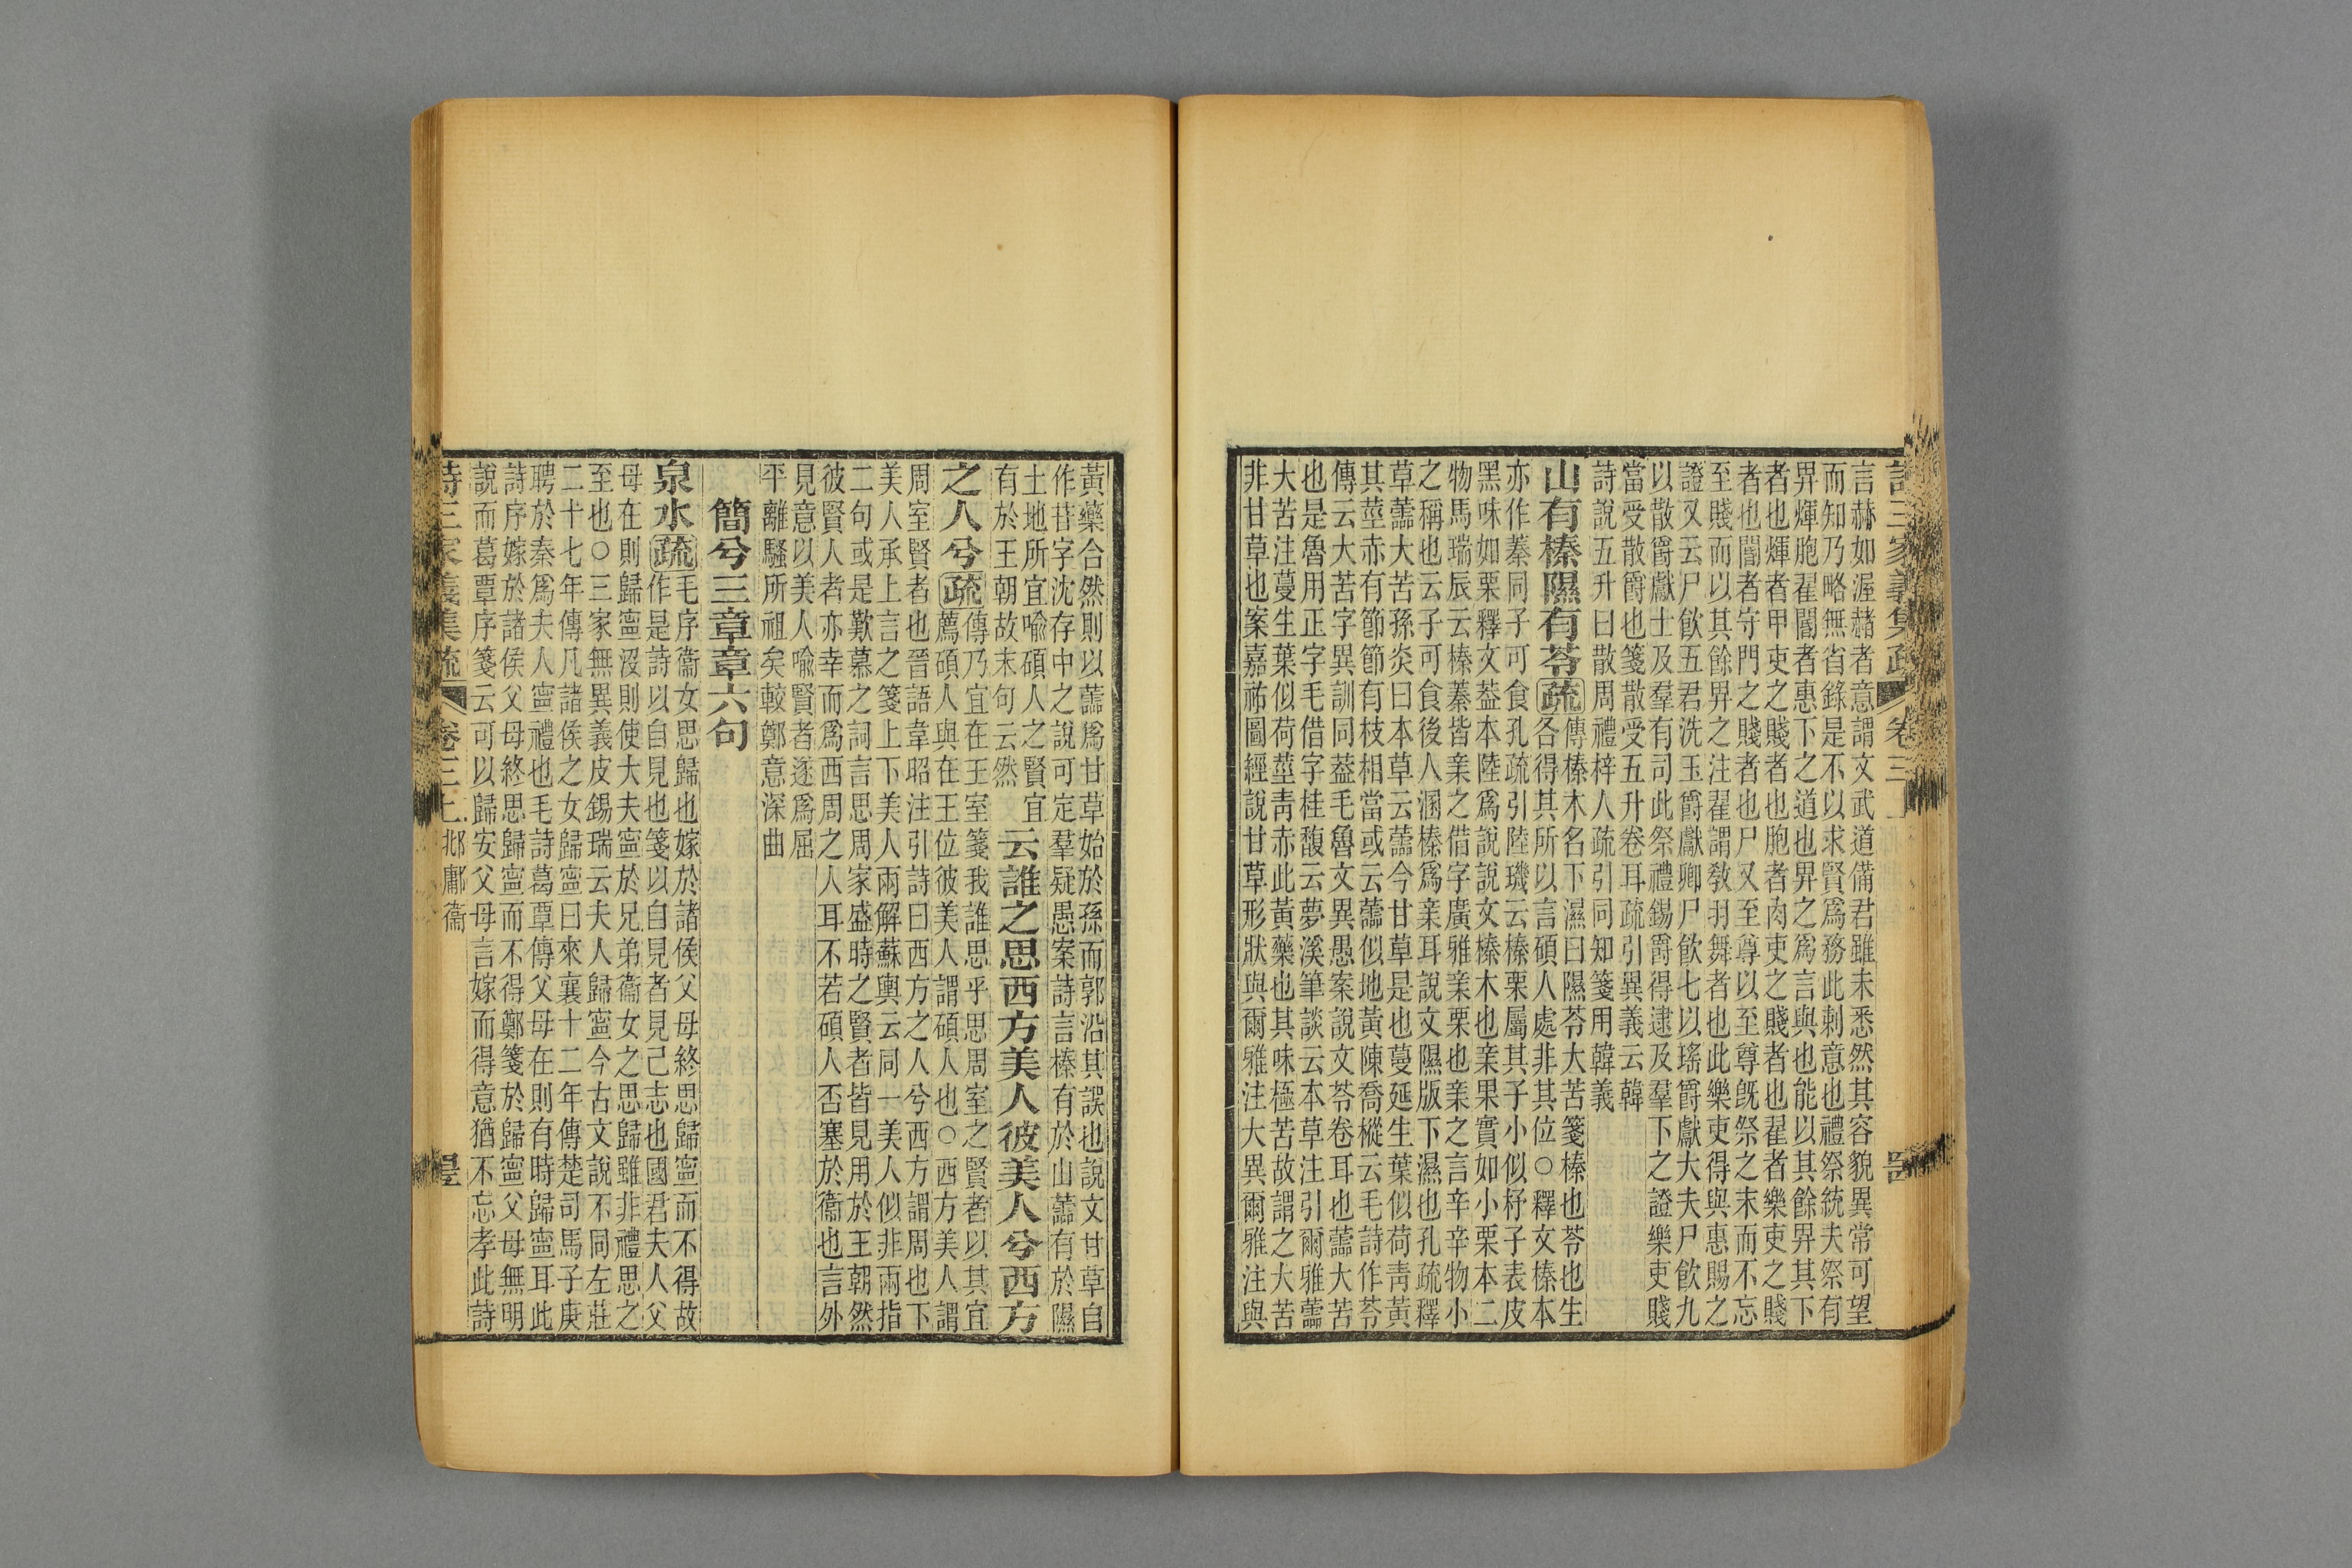 詩三家義集疏 卷三上
言赫如渥赭者意謂文武道備君雖未悉然其容貌異常可望
而知乃略無省錄是不以求賢爲務此刺意也禮祭統夫祭有
畀煇胞翟閽者惠下之道也畀之爲言與也能以其餘畀其下
者也煇者甲吏之賤者也胞者肉吏之賤者也翟者樂吏之賤
者也閽者守門之賤者也尸又至尊以至尊旣祭之末而不忘
至賤而以其餘畀之注翟謂敎羽舞者也此樂吏得與惠賜之
證又云尸飮五君洗玉爵獻卿尸飮七以瑤爵獻大夫尸飮九
以散爵獻士及羣有司此祭禮錫爵得逮及羣下之證樂吏賤
當受散爵也箋散受五升卷耳疏引異義云韓
詩說五升曰散周禮梓人疏引同知箋用韓義
山有榛隰有苓疏傳榛木名下濕曰隰苓大苦箋榛也苓也生
各得其所以言碩人處非其位○釋文榛本
亦作蓁同子可食孔疏引陸璣云榛栗屬其子小似杼子表皮
黑味如栗釋文蓋本陸爲說說文榛木也亲果實如小栗本二
物馬瑞辰云榛蓁皆亲之借字廣雅亲栗也亲之言辛辛物小
之稱也云子可食後人溷榛爲亲耳說文隰版下濕也孔疏釋
草蘦大苦孫炎曰本草云蘦今甘草是也蔓延生葉似荷靑黃
其莖赤有節節有枝相當或云蘦似地黃陳喬樅云毛詩作苓
傳云大苦字異訓同葢毛魯文異愚案說文苓卷耳也蘦大苦
也是魯用正字毛借字桂馥云夢溪筆談云本草注引爾雅蘦
大苦注蔓生葉似荷莖靑赤此黃藥也其味極苦故謂之大苦
非甘草也案嘉祐圖經說甘草形狀與爾雅注大異爾雅注與
黃藥合然則以蘦爲甘草始於孫而郭沿其誤也說文甘草自
作苷字沈存中之說可定羣疑愚案詩言榛有於山蘦有於隰
土地所宜喩碩人之賢宜
有於王朝故末句云然 云誰之思西方美人彼美人兮西方
之人兮疏傳乃宜在王室箋我誰思乎思周室之賢者以其宜
薦碩人與在王位彼美人謂碩人也○西方美人謂
周室賢者也晉語韋昭注引詩曰西方之人兮西方謂周也下
美人承上言之箋上下美人兩解蘇輿云同一美人似非兩指
二句或是歎慕之詞言思周家盛時之賢者皆見用於王朝然
彼賢人者亦幸而爲西周之人耳不若碩人否塞於衞也言外
見意以美人喩賢者遂爲屈
平離騷所祖矣較鄭意深曲
簡兮三章章六句
泉水疏毛序衞女思歸也嫁於諸侯父母終思歸寧而不得故
作是詩以自見也箋以自見者見己志也國君夫人父
母在則歸寧沒則使大夫寧於兄弟衞女之思歸雖非禮思之
至也○三家無異義皮錫瑞云夫人歸寧今古文說不同左莊
二十七年傳凡諸侯之女歸寧曰來襄十二年傳楚司馬子庚
聘於秦爲夫人寧禮也毛詩葛覃傳父母在則有時歸寧耳此
詩序嫁於諸侯父母終思歸寧而不得鄭箋於歸寧父母無明
說而葛覃序箋云可以歸安父母言嫁而得意猶不忘孝此詩
詩三家義集疏 卷三上 邶鄘衞